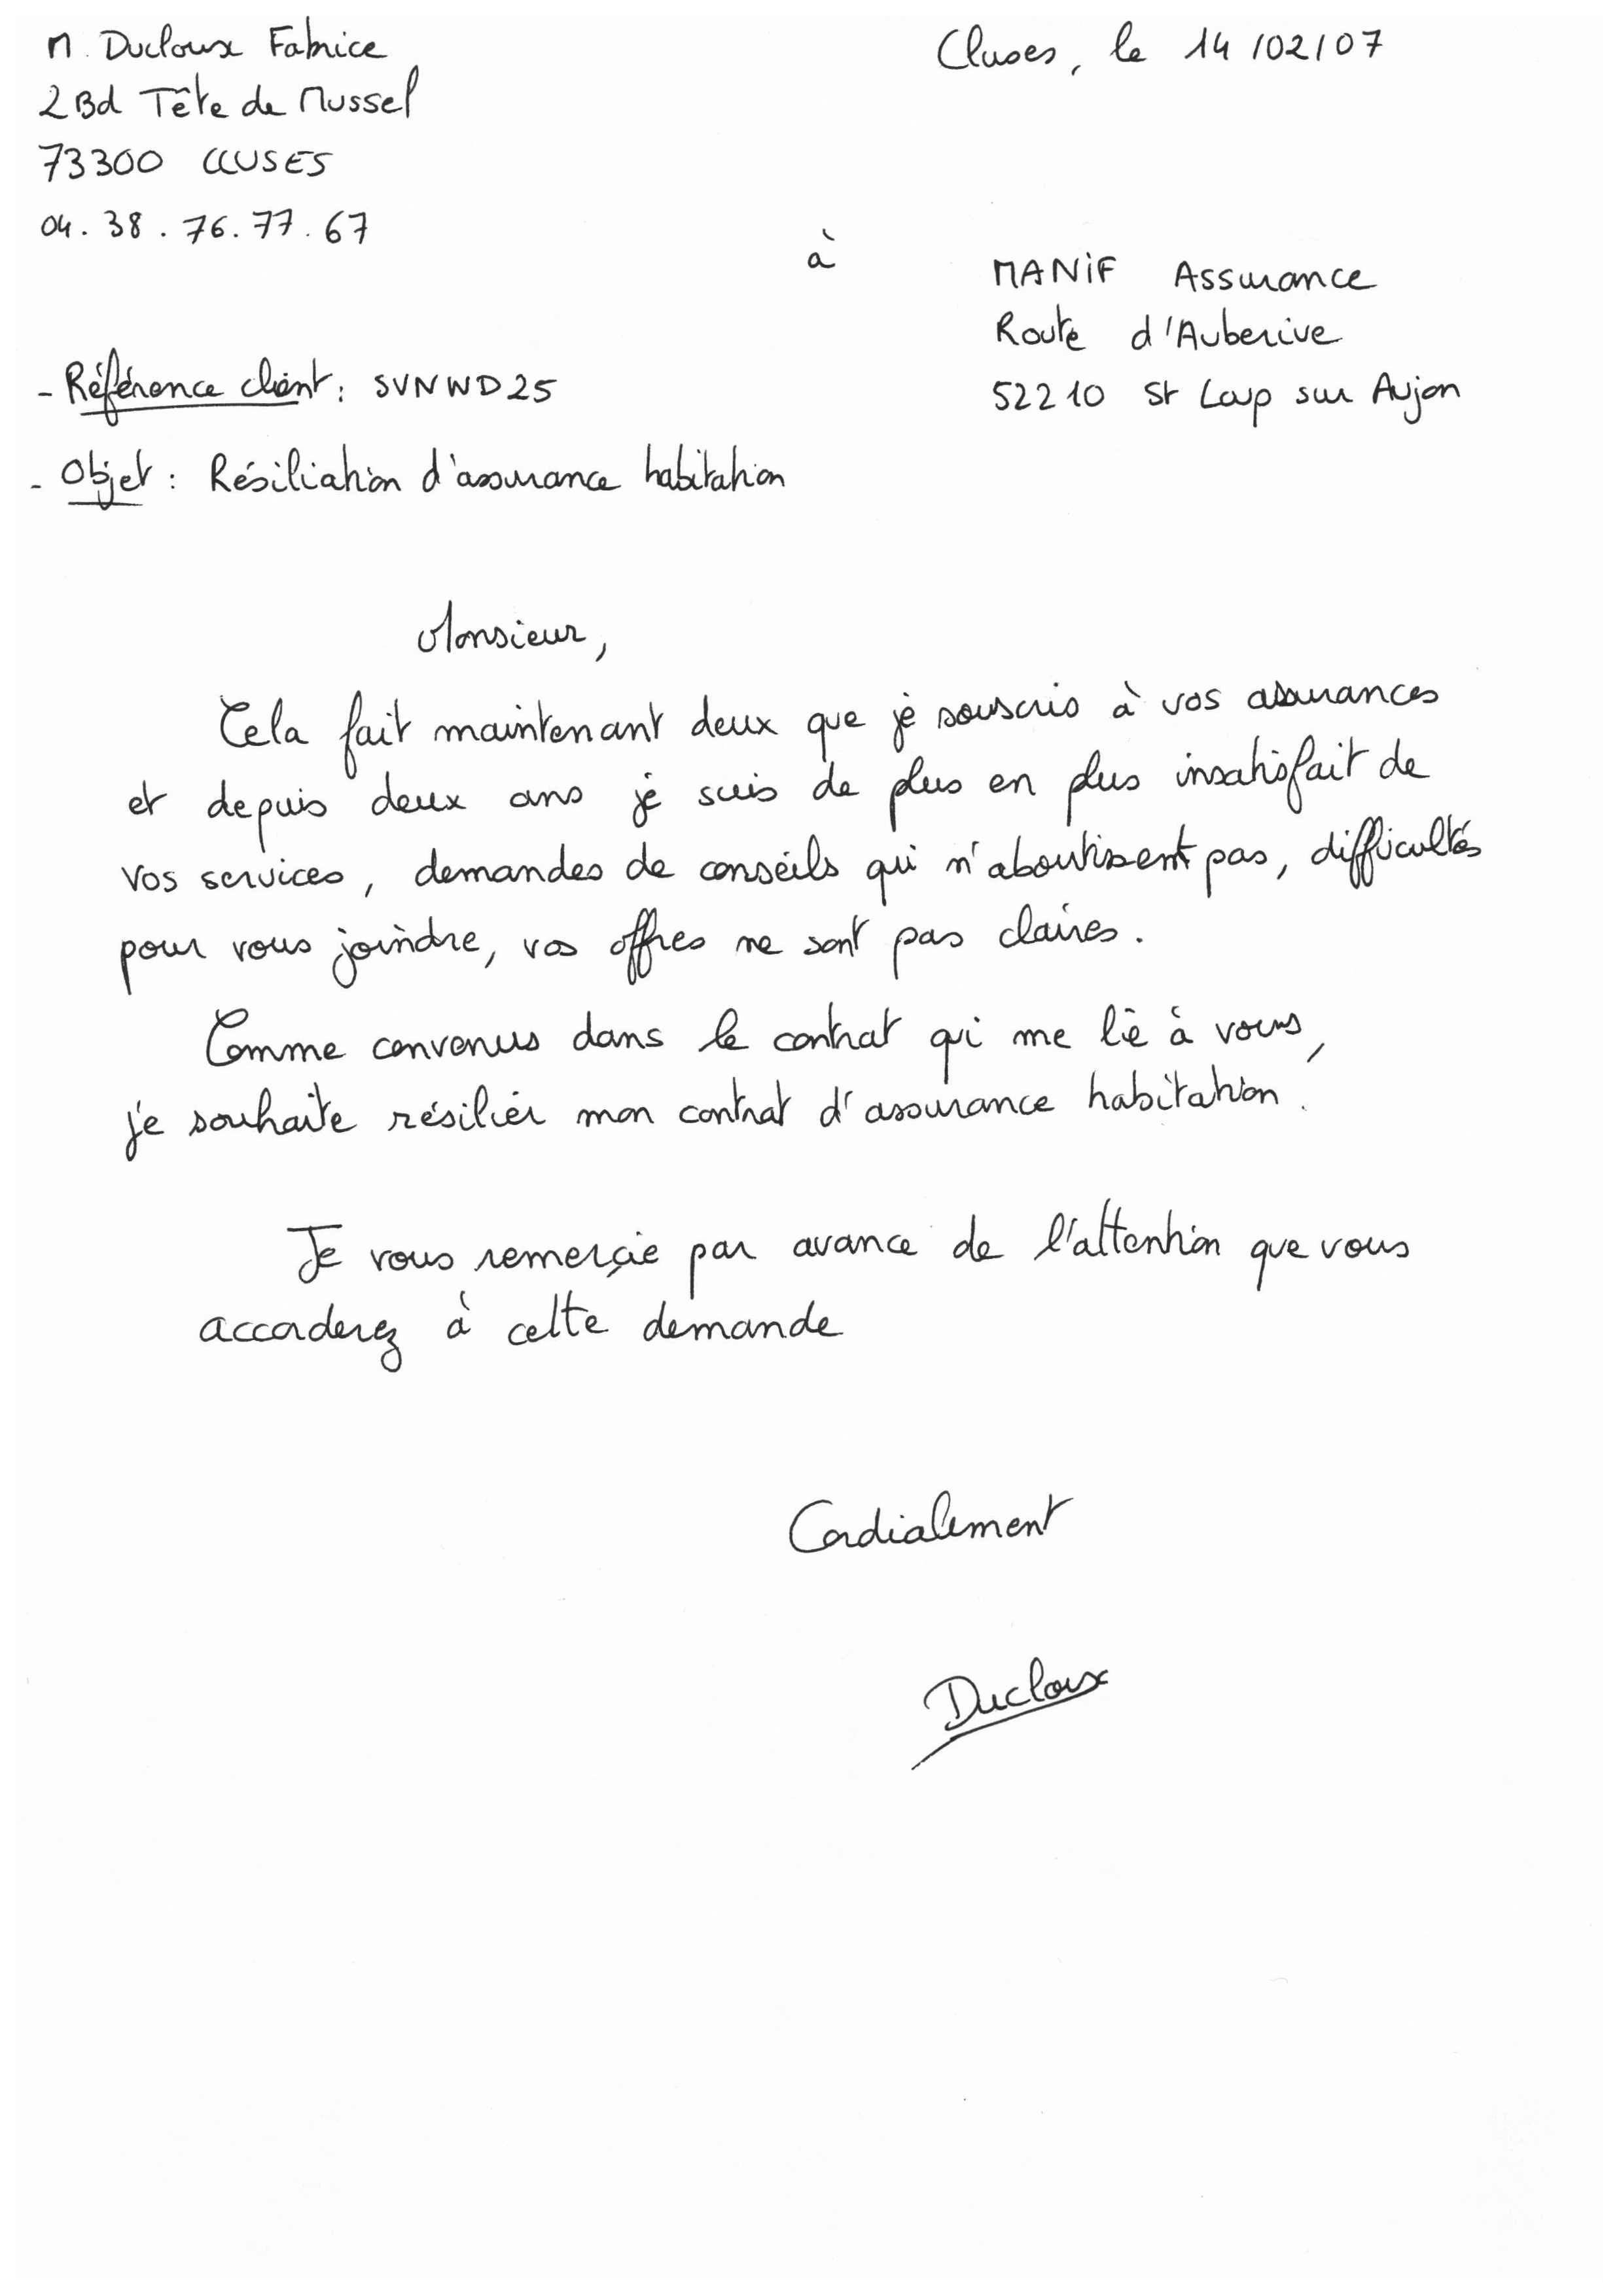 M. Ducloux Fabrice
2 Bd Tête de Mussel
73300 CLUSES
04.38.76.77.67
Cluses, le 14/02/07
à
MANiF Assurance
Route d'Auberive
52210 St Loup sur Aujon
- Référence client : SVNWD25
- Objet : Résiliation d'assurance habitation
Monsieur,
Cela fait maintenant deux que je souscris à vos assurances
et depuis deux ans je suis de plus en plus insatisfait de
vos services, demandes de conseils qui n'aboutissent pas, difficultés
pour vous joindre, vos offres ne sont pas claires.
Comme convenus dans le contrat qui me lie à vous,
je souhaite résilier mon contrat d'assurance habitation.
Je vous remerçie par avance de l'attention que vous
accorderez à cette demande
Cordialement
Ducloux